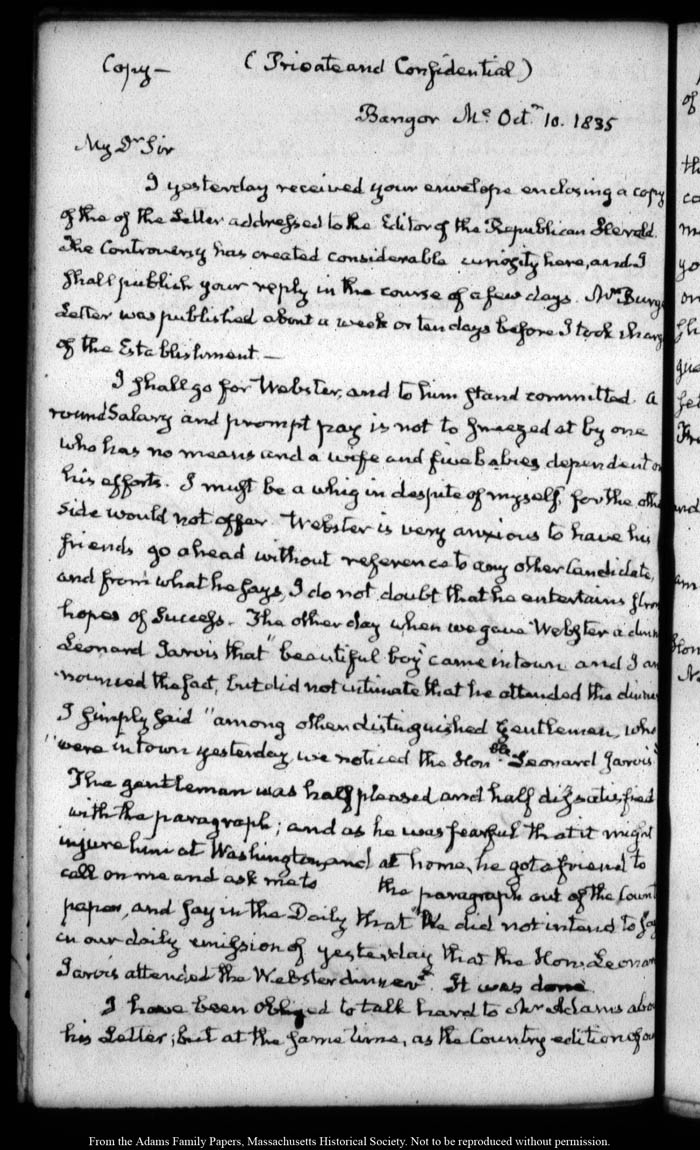 Copy— (Private and Confidential)
Bangor Me. Octr. 10. 1835
My Dr Sir
I yesterday received your envelope enclosing a copy
of the of the Letter addressed to the Editor of the Republican Herald.
The Controversy has created considerable curiosity here, and I
shall publish your reply in the course of a few days. Mr Burge
Letter was published about a week or ten days before I took charg
of the Establishment.—
I shall go for Webster, and to him stand committed. A
round Salary and prompt pay is not to sneezed at by one
who has no means and a wife and five babies dependent o
his efforts. I must be a whig in despite of myself, for the oth
side would not offer. Webster is very anxious to have his
friends go ahead without reference to any other Candidate,
and from what he says, I do not doubt that he entertains stron
hopes of Success. The other day when we gave Webster a dinn
Leonard Jarvis that "beautiful boy" came in town and I an
nounced the fact, but did not intimate that he attended the dinner
I simply said "among other distinguished Gentlemen, who
"were in town yesterday, we noticed the Honble. Leonard Jarvis"
The gentleman was half pleased and half dissatisfied
with the paragraph; and as he was fearful that it might
injure him at Washington, and at home, he got a friend to
call on me and ask me to the paragraph out of the Count
paper, and say in the Daily that "We did not intend to say
in our daily emission of yesterday that the Hon. Leonar
Jarvis attended the Webster dinner". It was done.
I have been obliged to talk hard to Mr Adams abo
his Letter; but at the same time, as the Country edition of ou
of
th
co
yo
on
gue
and
am
Hon
From the Adams Family Papers, Massachusetts Historical Society. Not to be reproduced without permission.